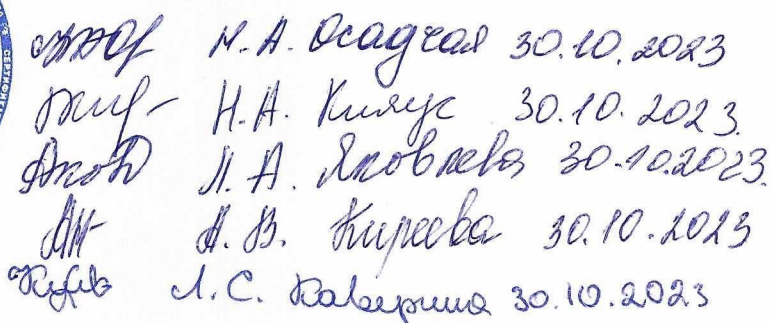 Н.А. Осадчая 30.10.2023
Н.А. Кияус 30.10.2023.
Л.А. Яковлева 30.10.2023.
А.В. Киреева 30.10.2023
Л.С. Каверина 30.10.2023